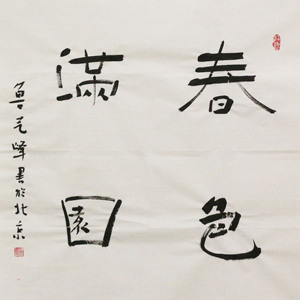 春色
滿園
莫元峰書於北京